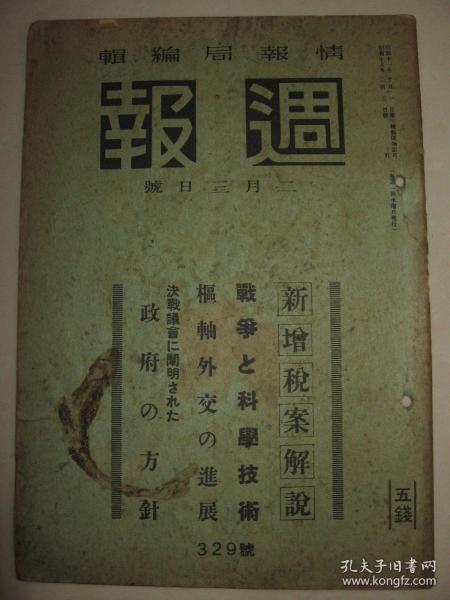 情報局編輯
週報
二月三日號
新增稅案解說
戰爭と科學技術
樞軸外交の進展
決戰議會に闡明された
政府の方針
329號
五錢
孔夫子旧书网
www.kongfz.com